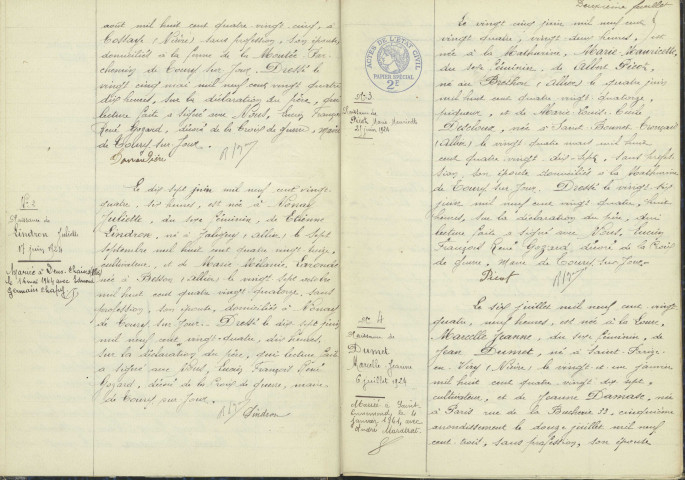 août mil huit cent quatre vingt cinq, à
Cossaye (Nièvre) sans profession, son épouse,
domiciliés à la ferme de la
de Toury sur Jour. Dressé le
vingt cinq mai mil neuf cent vingt quatre
dix heures, sur la déclaration du père, qui
lecture faite a signé avec Nous, Lucien François
René Gozard, décoré de la Croix de guerre, Maire
de Toury sur Jour.
N° 2
Naissance de
Lindron Juliette
17 juin 1924
Mariée à
le 16 mai 1944 avec
Germain
Le dix sept juin mil neuf cent vingt
quatre, six heures, est née à
Juliette, du sexe féminin, de Etienne
Lindron, né à Jaligny (Allier) le sept
septembre mil huit cent quatre vingt treize,
cultivateur, et de Marie Mélanie
née à Besson (Allier) le vingt sept octobre
mil huit cent quatre vingt quatorze, sans
profession, son épouse, domiciliés à
de Toury sur Jour. Dressé le dix sept juin
mil neuf cent vingt quatre, dix heures,
sur la déclaration du père, qui lecture faite
a signé avec Nous, Lucien François René
Gozard, décoré de la Croix de guerre, maire
de Toury sur Jour.
Lindron
Deuxième feuillet
ACTES DE L'ÉTAT CIVIL
PAPIER SPÉCIAL
2F
N° 3
Naissance de
Marie Mauricette
25 juin 1924
Le vingt cinq juin mil neuf cent
vingt quatre, vingt deux heures, est
née à la Mathurine, Marie Mauricette,
du sexe féminin, de Albert
né au Brethon (Allier) le quatre juin
mil huit cent quatre vingt quatorze,
et de Marie Louise
née à Saint Bonnet Tronçais
(Allier) le vingt quatre mars mil huit
cent quatre vingt dix sept, sans profes
sion, son épouse domiciliés à la Mathurine
de Toury sur Jour. Dressé le vingt six
juin mil neuf cent vingt quatre, huit
heures, sur la déclaration du père, qui
lecture faite a signé avec Nous, Lucien
François René Gozard, décoré de la Croix
de guerre, Maire de Toury sur Jour.
N° 4
Naissance de
Dumet
Marcelle Jeanne
6 juillet 1924
Mariée à Saint
le 4
janvier 1941, avec
André
Le six juillet mil neuf cent vingt
quatre, neuf heures, est née à la
Marcelle Jeanne, du sexe féminin, de
Jean Dumet, né à Saint Parize
en Viry (Nièvre) le vingt et un janvier
mil huit cent quatre vingt dix sept,
cultivateur, et de Jeanne Damase, née
à Paris rue de la Bucherie 22, cinquième
arrondissement le douze juillet mil neuf
cent trois, sans profession, son épouse